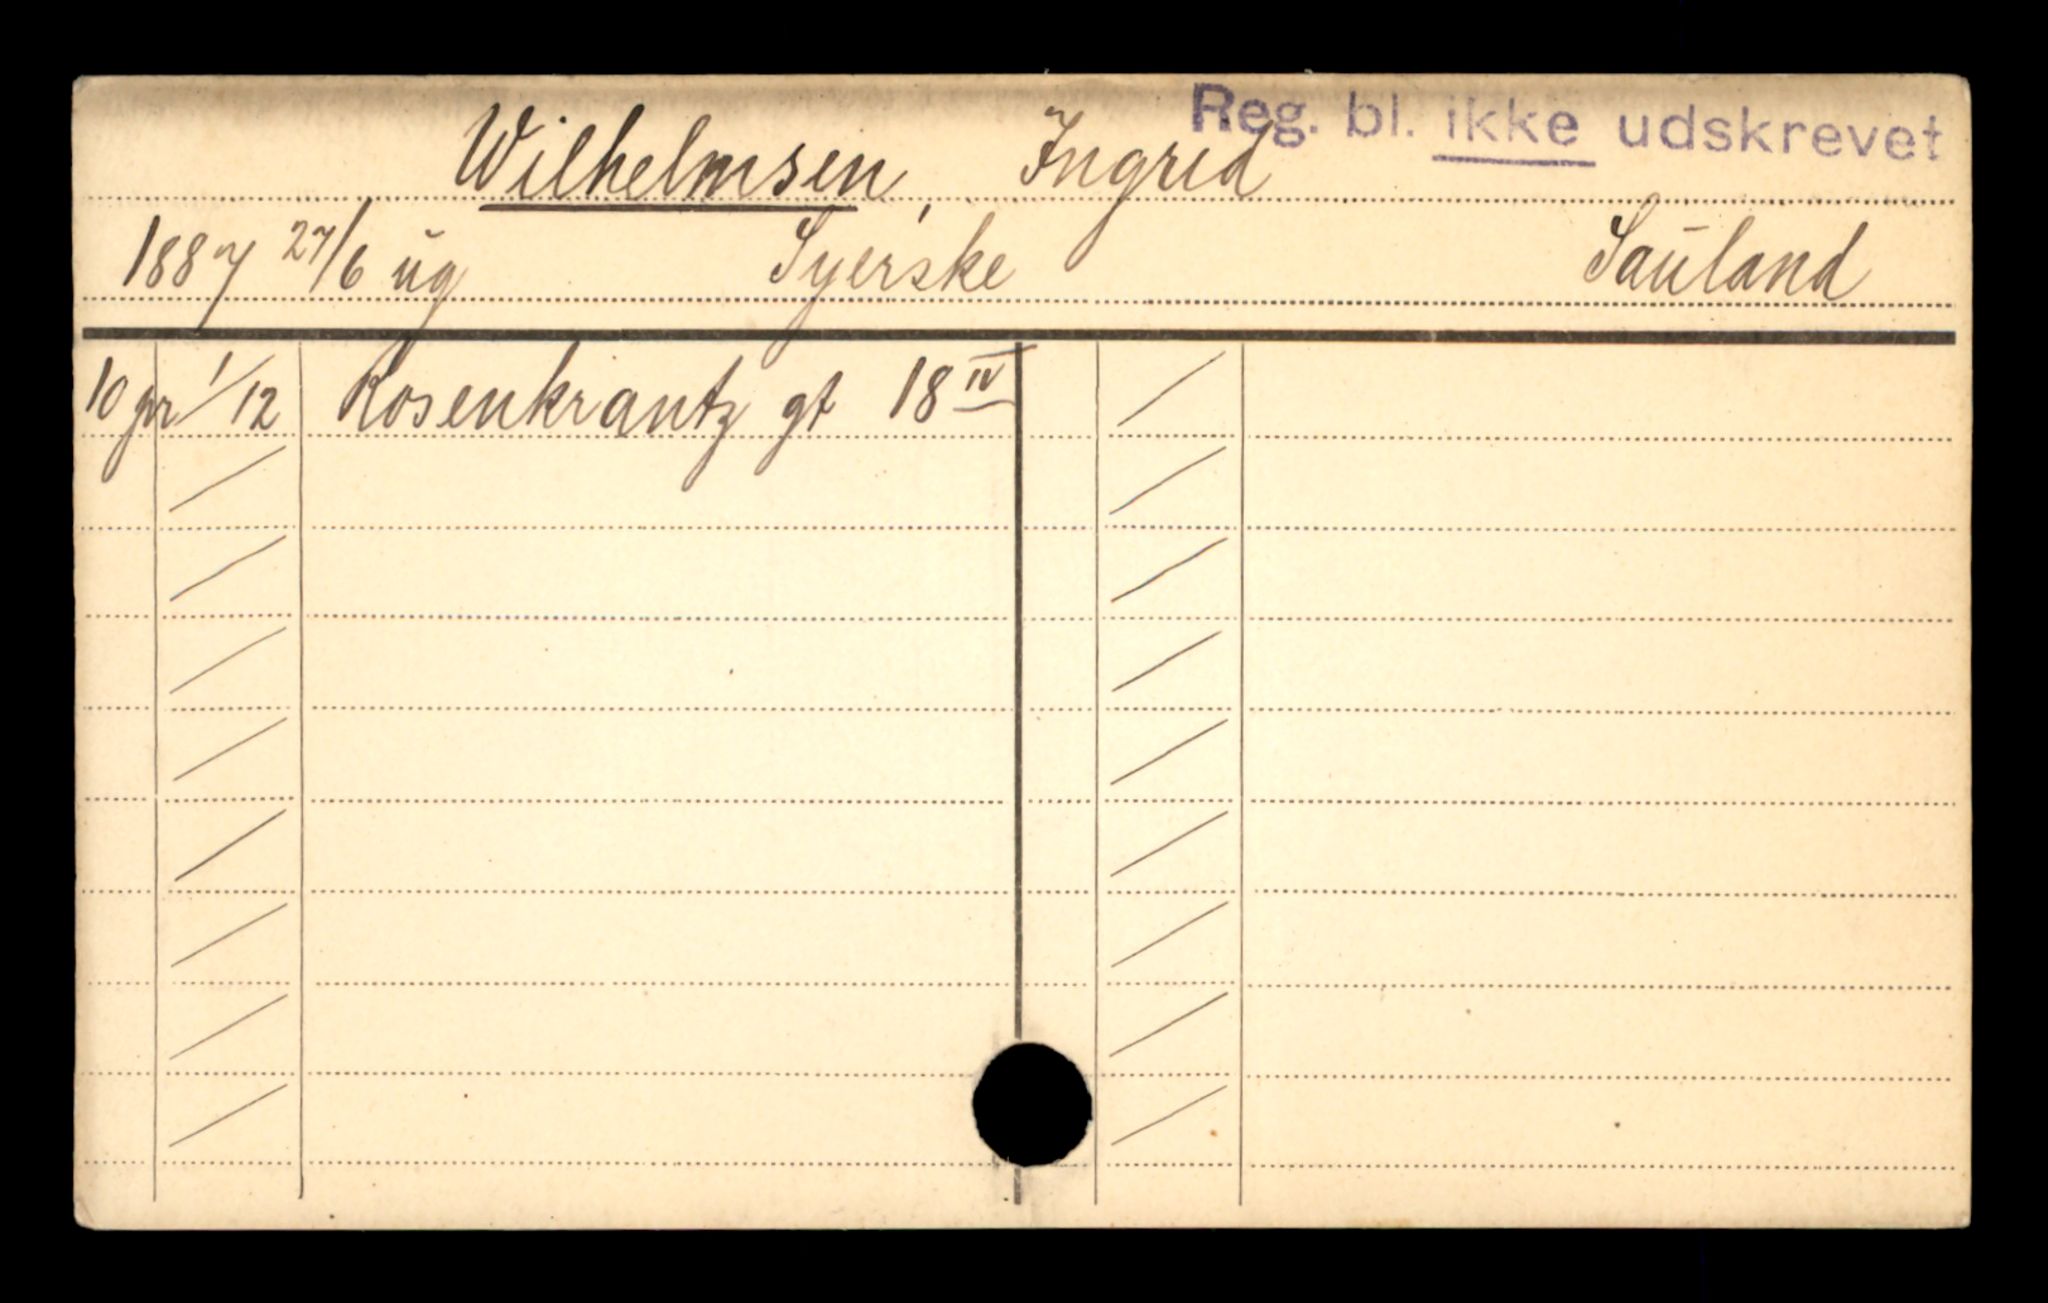 Reg. bl. ikke udskrevet
Wilhelmsen, Ingrid
1887 27/6 ug Syerske Sauland
10 pr 1/12 Rosenkrantz gt 18 IV